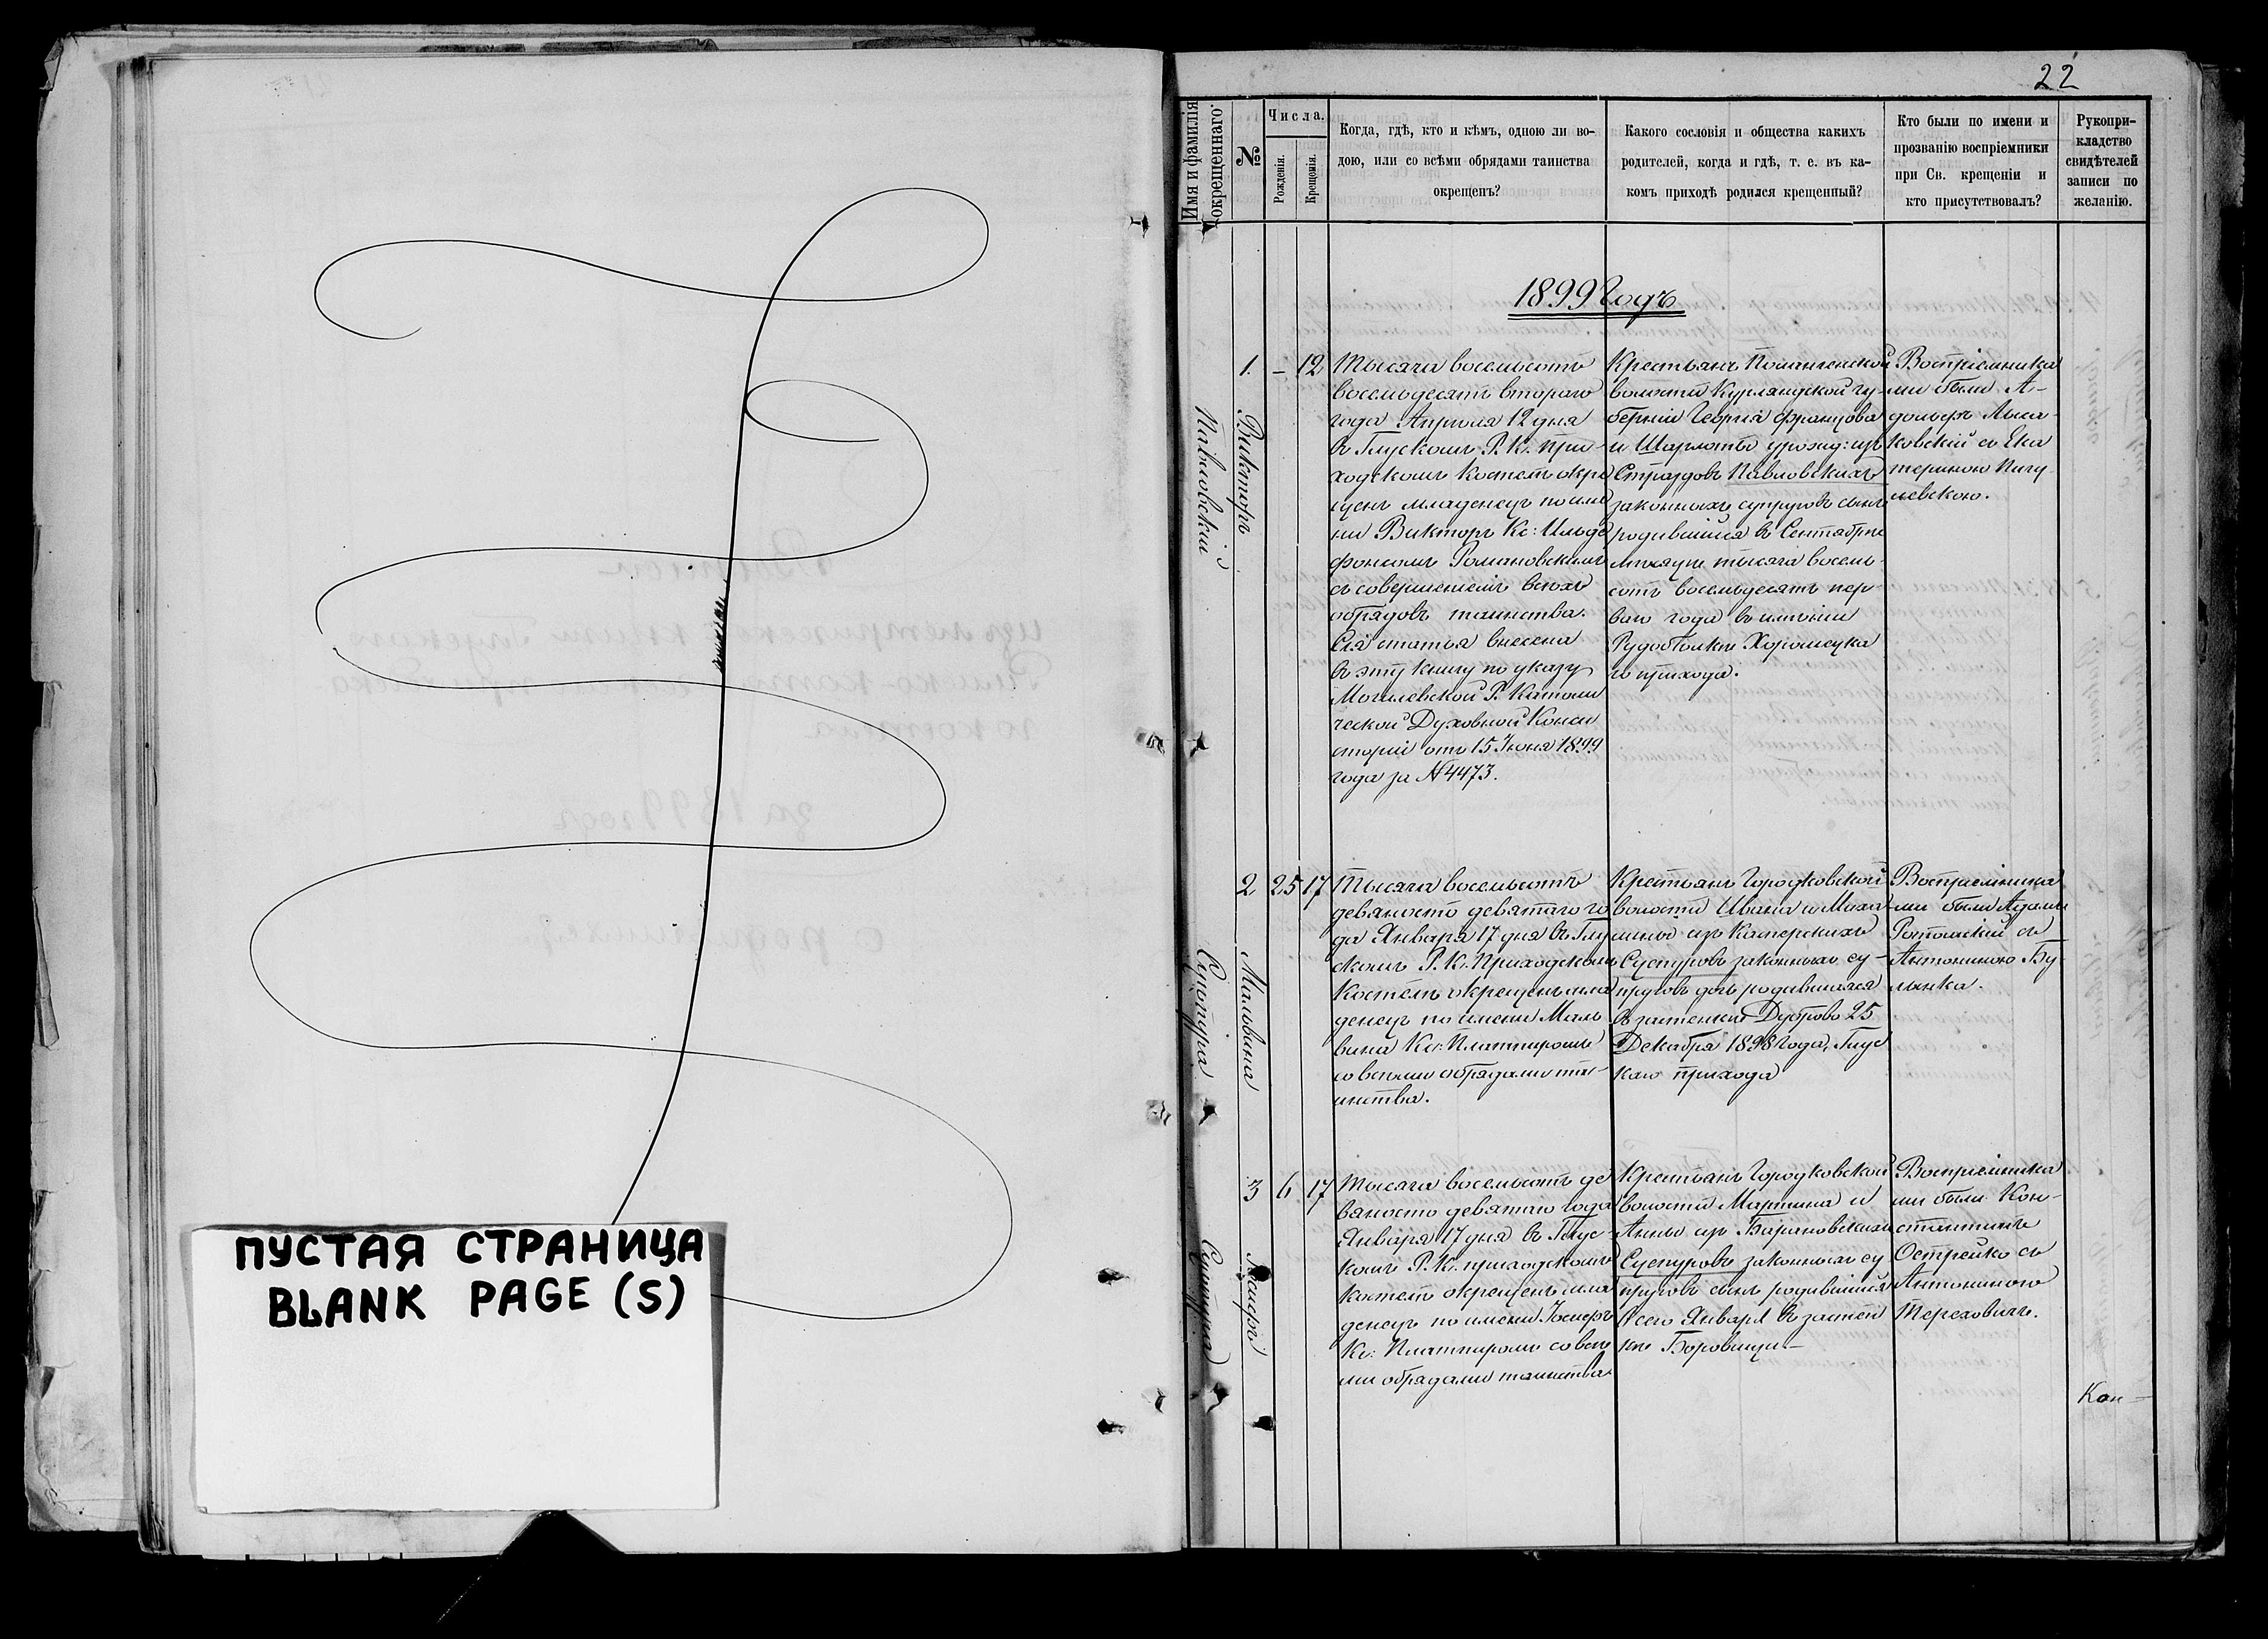 ПУСТАЯ СТРАНИЦА
BLANK PAGE (S)
22
Имя и фамилія
окрещеннаго.
№
Числа.
Рожденія.
Крещенія.
Когда, гдѣ, кто и кѣмъ, одною ли во-
дою, или со всѣми обрядами таинства
окрещенъ?
Какого сословія и общества какихъ
родителей, когда и гдѣ, т. е. въ ка-
комъ приходѣ родился крещенный?
Кто были по имени и
прозванію воспріемники
при Св. крещеніи и
кто присутствовалъ?
Рукопри-
кладство
свидѣтелей
записи по
желанію.
1899 Годъ
Викторъ
Павловскій
1. – 12
Тысяча восемьсотъ
восемьдесятъ втораго
года Апрѣля 12 дня
въ Глускомъ Р. К. при-
ходскомъ костелѣ окре
щенъ младенецъ по име
ни Викторъ Кс: Ильде
фонсомъ Романовскимъ
съ совершеніемъ всѣхъ
обрядовъ таинства.
Сія статья внесена
въ эту книгу по указу
Могилевской Р. Католи
ческой Духовной Конси
сторіи отъ 15 Іюня 1899
года за №4473.
Крестьянъ
волости Курляндской гу-
берніи Георгія Францова
и Шарлоты урожд: изъ
Павловскихъ
законныхъ супруговъ сынъ
родившійся въ Сентябрѣ
мѣсяцѣ тысяча восемь-
сотъ восемьдесятъ пер-
ваго года въ имѣніи
Рудобѣлкѣ
го прихода.
Воспріемника
ми были А-
дольфъ
ковскій съ Ека
териною
левскою.
Мальвина
Сцепура
2 25 17
Тысяча восемьсотъ
девяносто девятаго го
да Января 17 дня въ Глу
скомъ Р. К. Приходскомъ
Костелѣ окрещенъ мла
денецъ по имени Маль
вина Кс: Платпиромъ
со всѣми обрядами таи-
нства.
Крестьянъ Городковской
волости Ивана и Миха-
лины изъ Каперскихъ
Сцепуровъ законныхъ су-
пруговъ дочь родившаяся
въ застенкѣ Дуброво 25
Декабря 1898 года, Глус
каго прихода
Воспріемника
ми были Адамъ
съ
Антониною Бу
лынка.
Іосифъ
Сцепура
3 6 17
Тысяча восемьсотъ де
вяносто девятаго года
Января 17 дня въ Глус-
комъ Р. К. приходскомъ
костелѣ окрещенъ мла
денецъ по имени Іосифъ
Кс: Платпиромъ со всѣ
ми обрядами таинства
Крестьянъ Городковской
волости Мартина и
Анны изъ Барановскихъ
Сцепуровъ законныхъ су
пруговъ сынъ родившійся
6 сего Января въ застен
кѣ Боровищи
Воспріемника
ми были Кон-
стантинъ
Острейко съ
Антониною
Тереховичъ.
Кон-